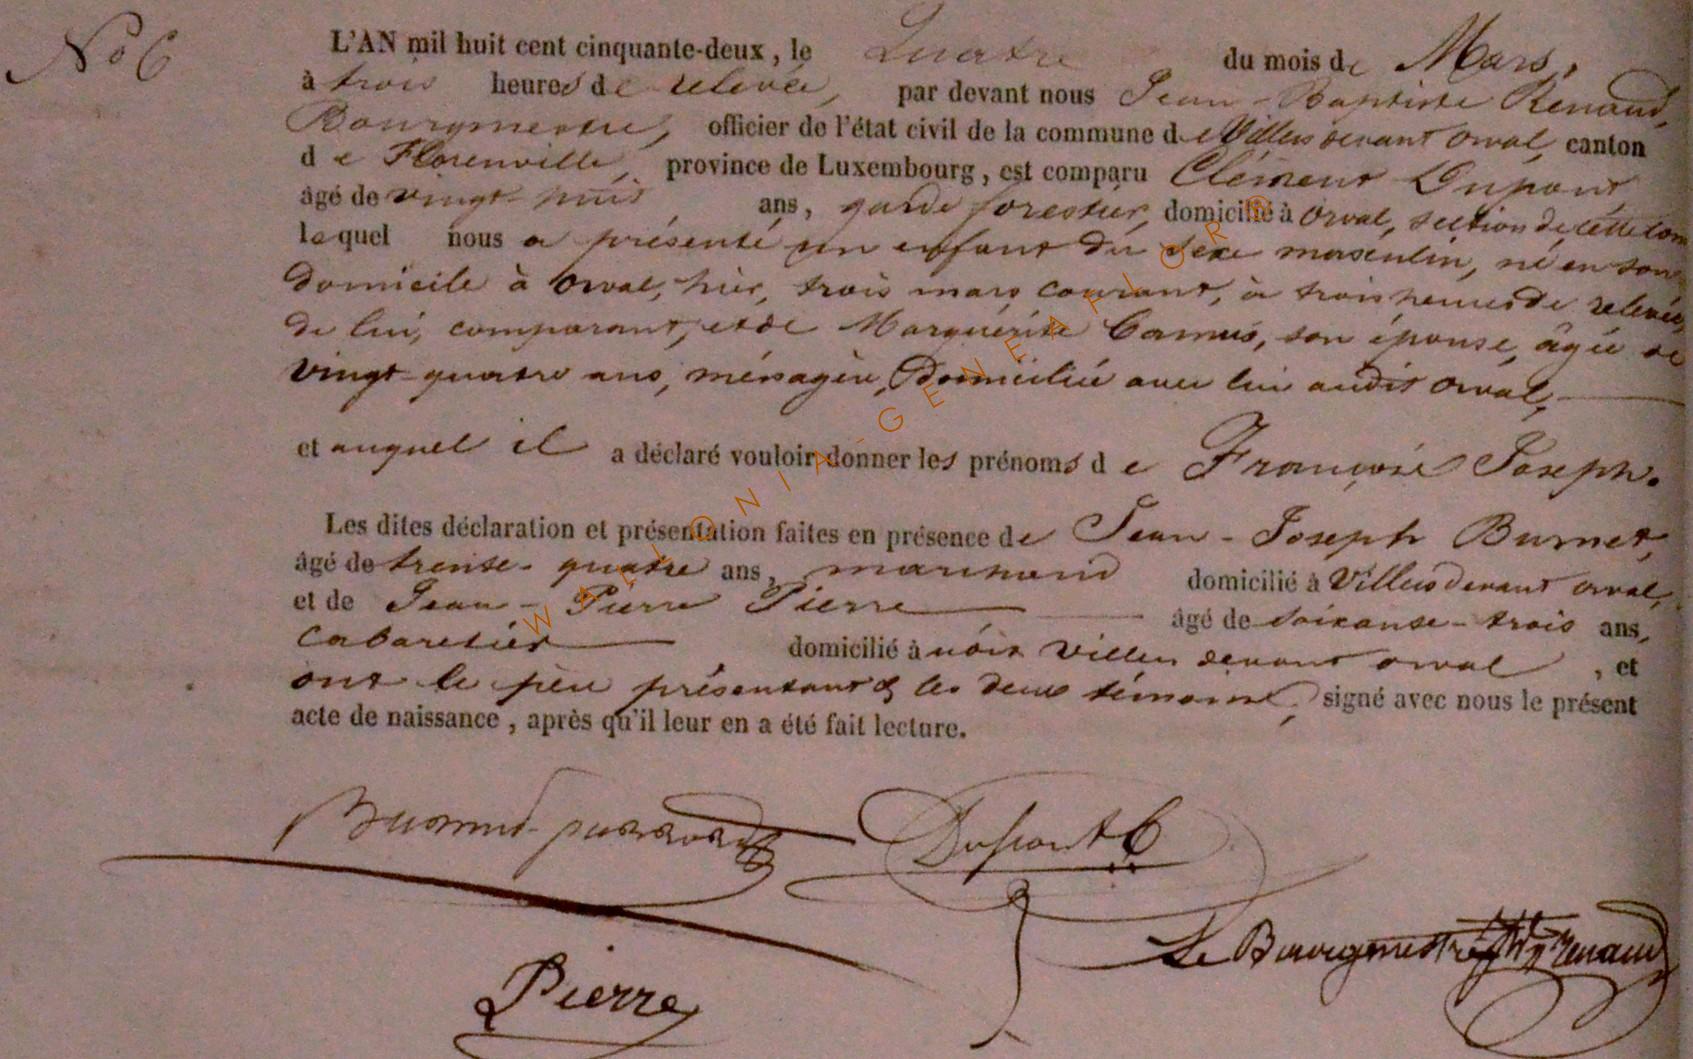 No 6
L'AN mil huit cent cinquante-deux, le Quatre du mois de Mars,
à trois heures de relevée, par devant nous Jean-Baptiste Renaud,
Bourgmestre, officier de l'état civil de la commune de Villers devant orval, canton
de Florenville, province de Luxembourg, est comparu Clément Dupont,
âgé de vingt-huit ans, garde forestier, domicilié à orval, section de cette com
lequel nous a présenté un enfant du sexe masculin, né en son
domicile à orval, hier, trois mars courant, à trois heures de relevée,
de lui, comparant, et de Marguérite Camus, son épouse, âgée de
vingt-quatre ans, ménagère, domiciliée avec lui audit orval,
et auquel il a déclaré vouloir donner les prénoms de François Joseph.
Les dites déclaration et présentation faites en présence de Jean-Joseph Burnet,
âgé de trente-quatre ans, marchand domicilié à Villers devant orval,
et de Jean-Pierre Pierre âgé de soixante-trois ans,
Cabaretier domicilié à Villers devant orval, et
ont le père présentant & les deux témoins, signé avec nous le présent
acte de naissance, après qu'il leur en a été fait lecture.
Dupont C
Le Bourgmestre Renaud
Pierre
WALLONIA-GENEAFLOR®